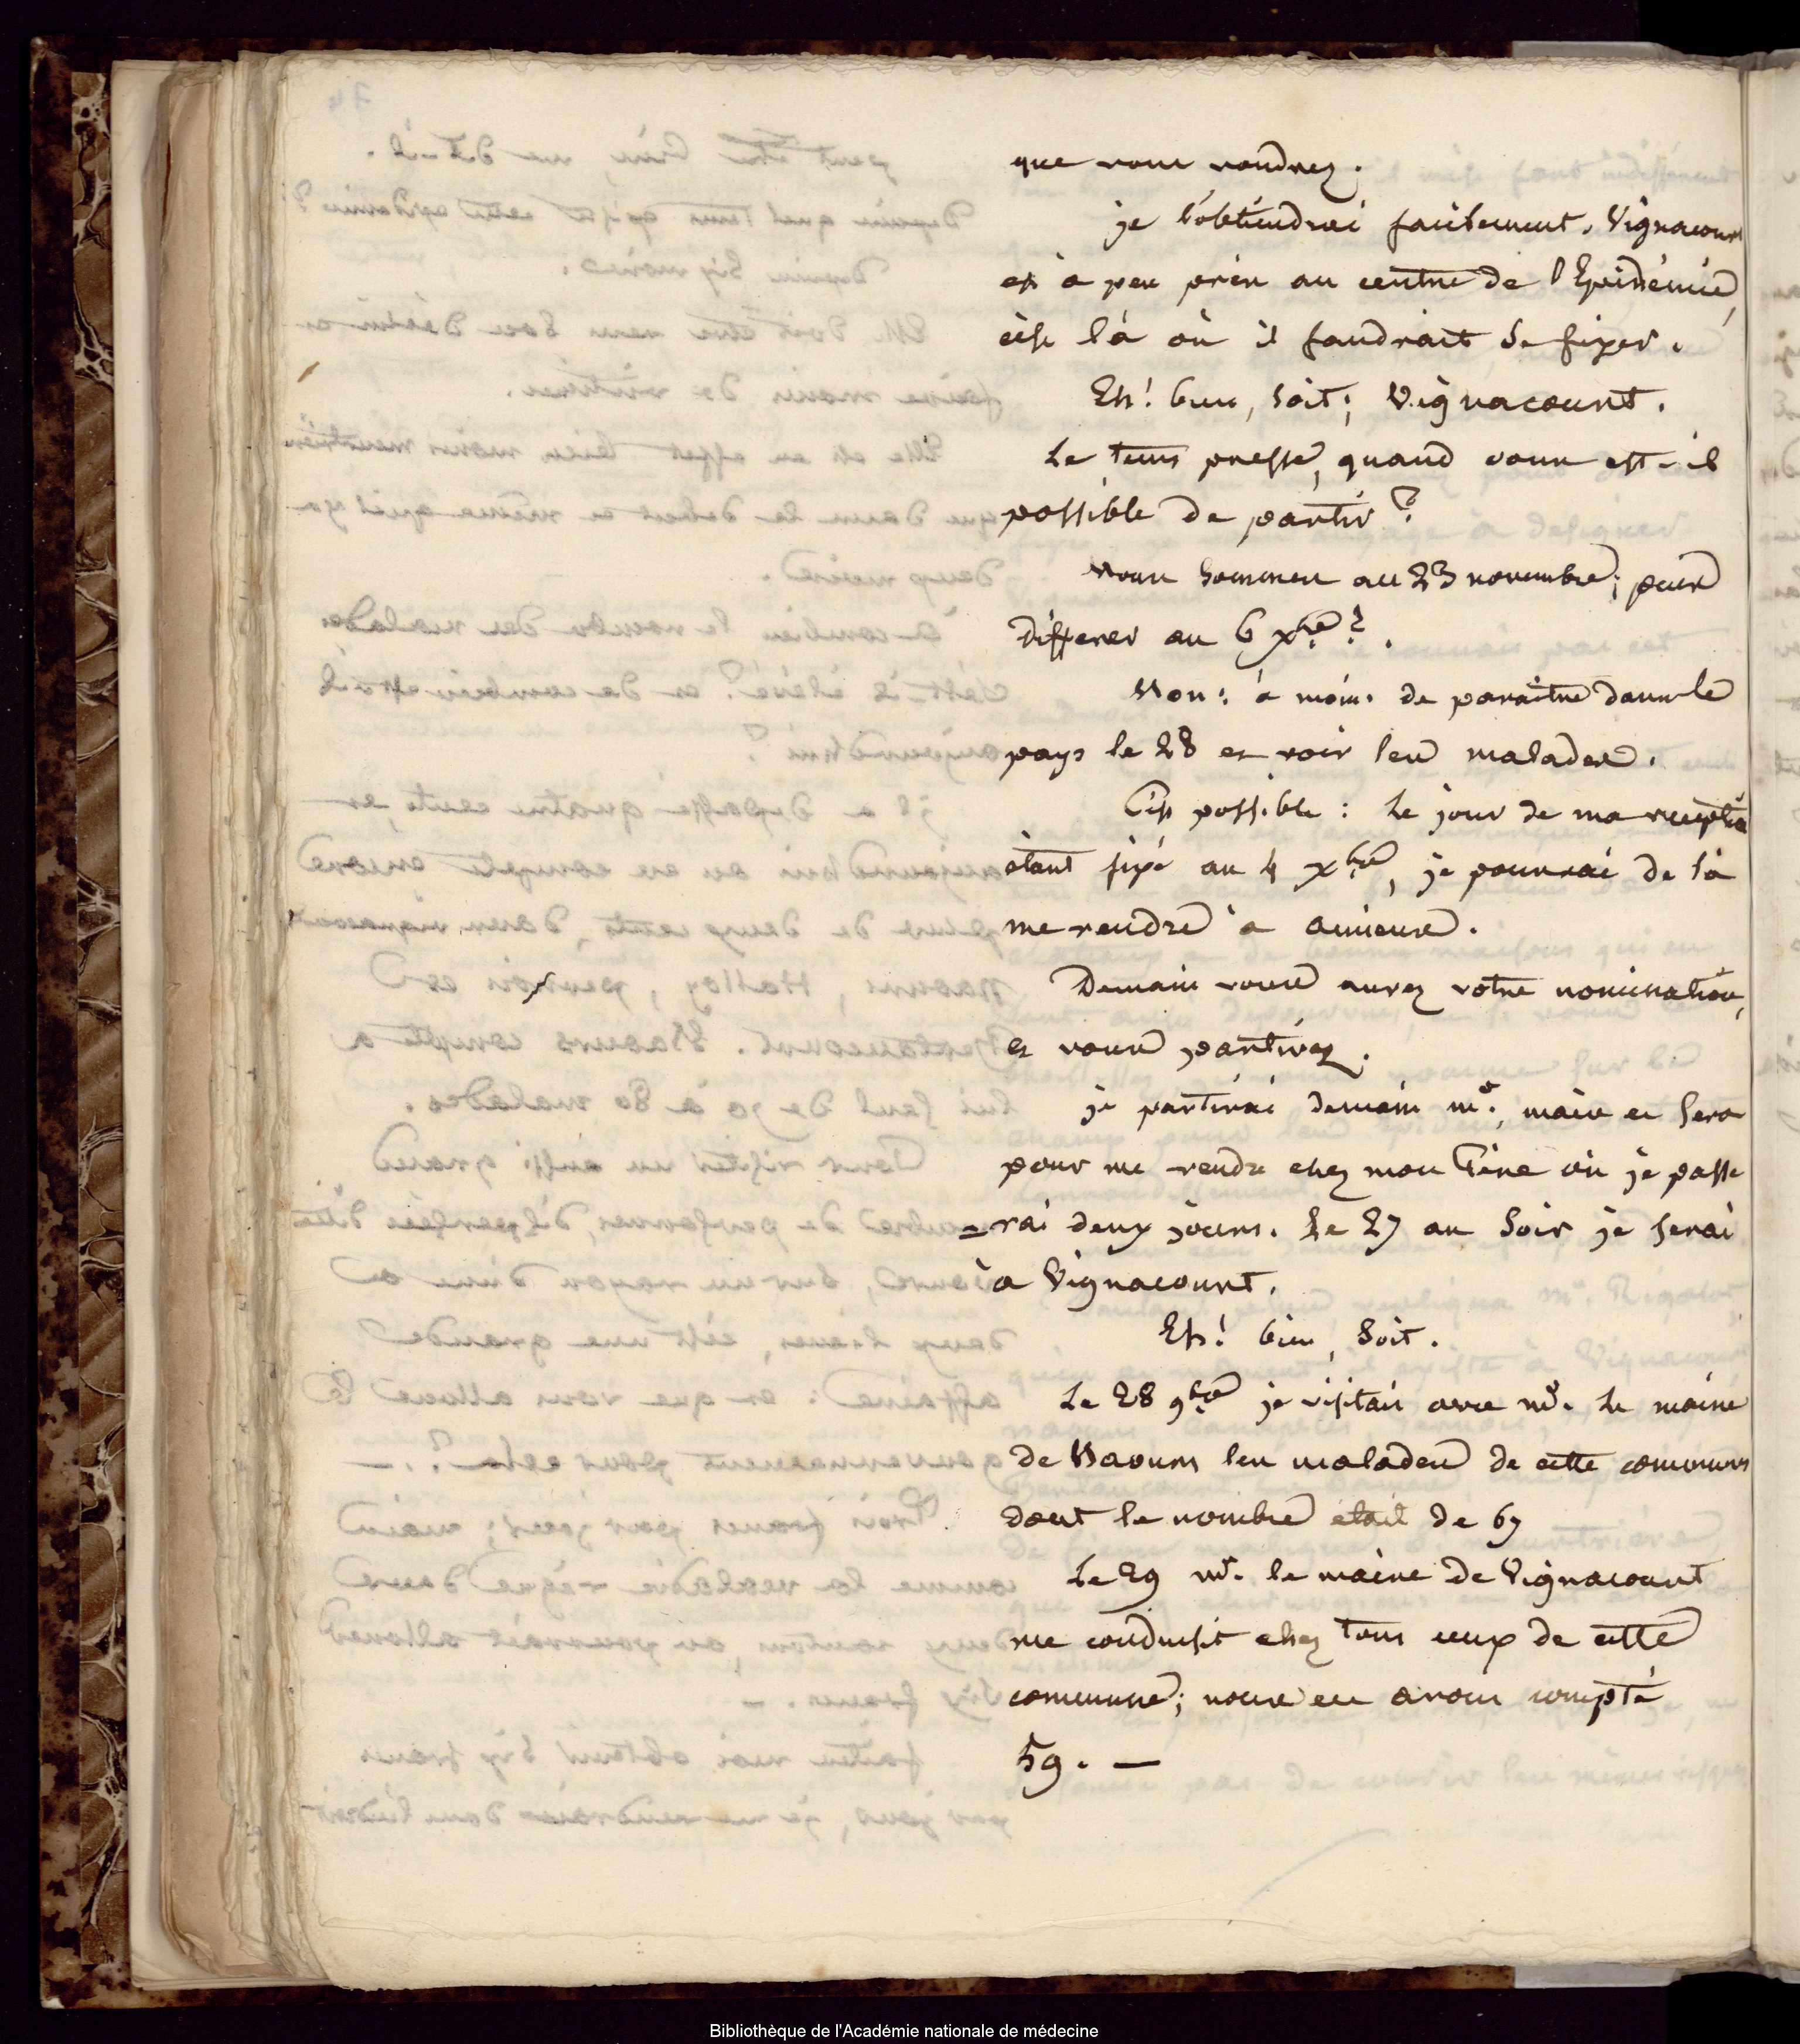 que vous voudrez.
je l'obtiendrai facilement. Vignacourt
est à peu près au centre de l'Epidémie,
c'est là où il faudrait se fixer.
Eh! bien, soit; Vignacourt.
Le tems presse, quand vous est-il
possible de partir?
Nous sommes au 23 novembre; peut on
differer au 6 xbre?.
Non: à moins de paraître dans le
pays le 28 et voir les malades.
C'est possible: Le jour de ma réception
étant fixé au 4 xbre, je pourrai de là
me rendre à amiens.
Demain vous aurez votre nomination,
et vous partirez.
je partirai demain mr., mais ce sera
pour me rendre chez mon Père où je passe
=rai deux jours. Le 27 au soir je serai
à Vignacourt.
Eh! bien, soit.
Le 28 9bre je visitais avec mr. le maire
de Naours les malades de cette commune
dont le nombre était de 67
Le 29 mr. le maire de Vignacourt
me conduisit chez tous ceux de cette
commune; nous en avons compté
59. —
Bibliothèque de l'Académie nationale de médecine